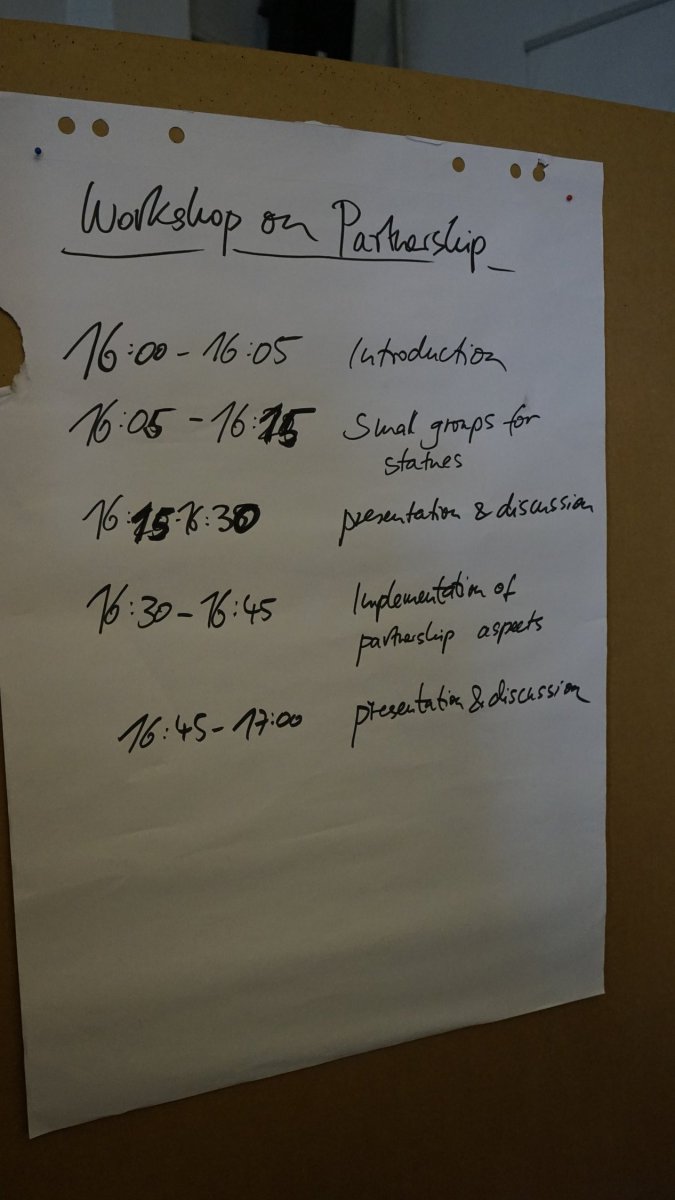 Workshop on Partnership
16:00 - 16:05 Introduction
16:05 - 16:15 Small groups for
statues
16:15-16:30 presentation & discussion
16:30 - 16:45 Implementation of
partnership aspects
16:45 - 17:00 presentation & discussion